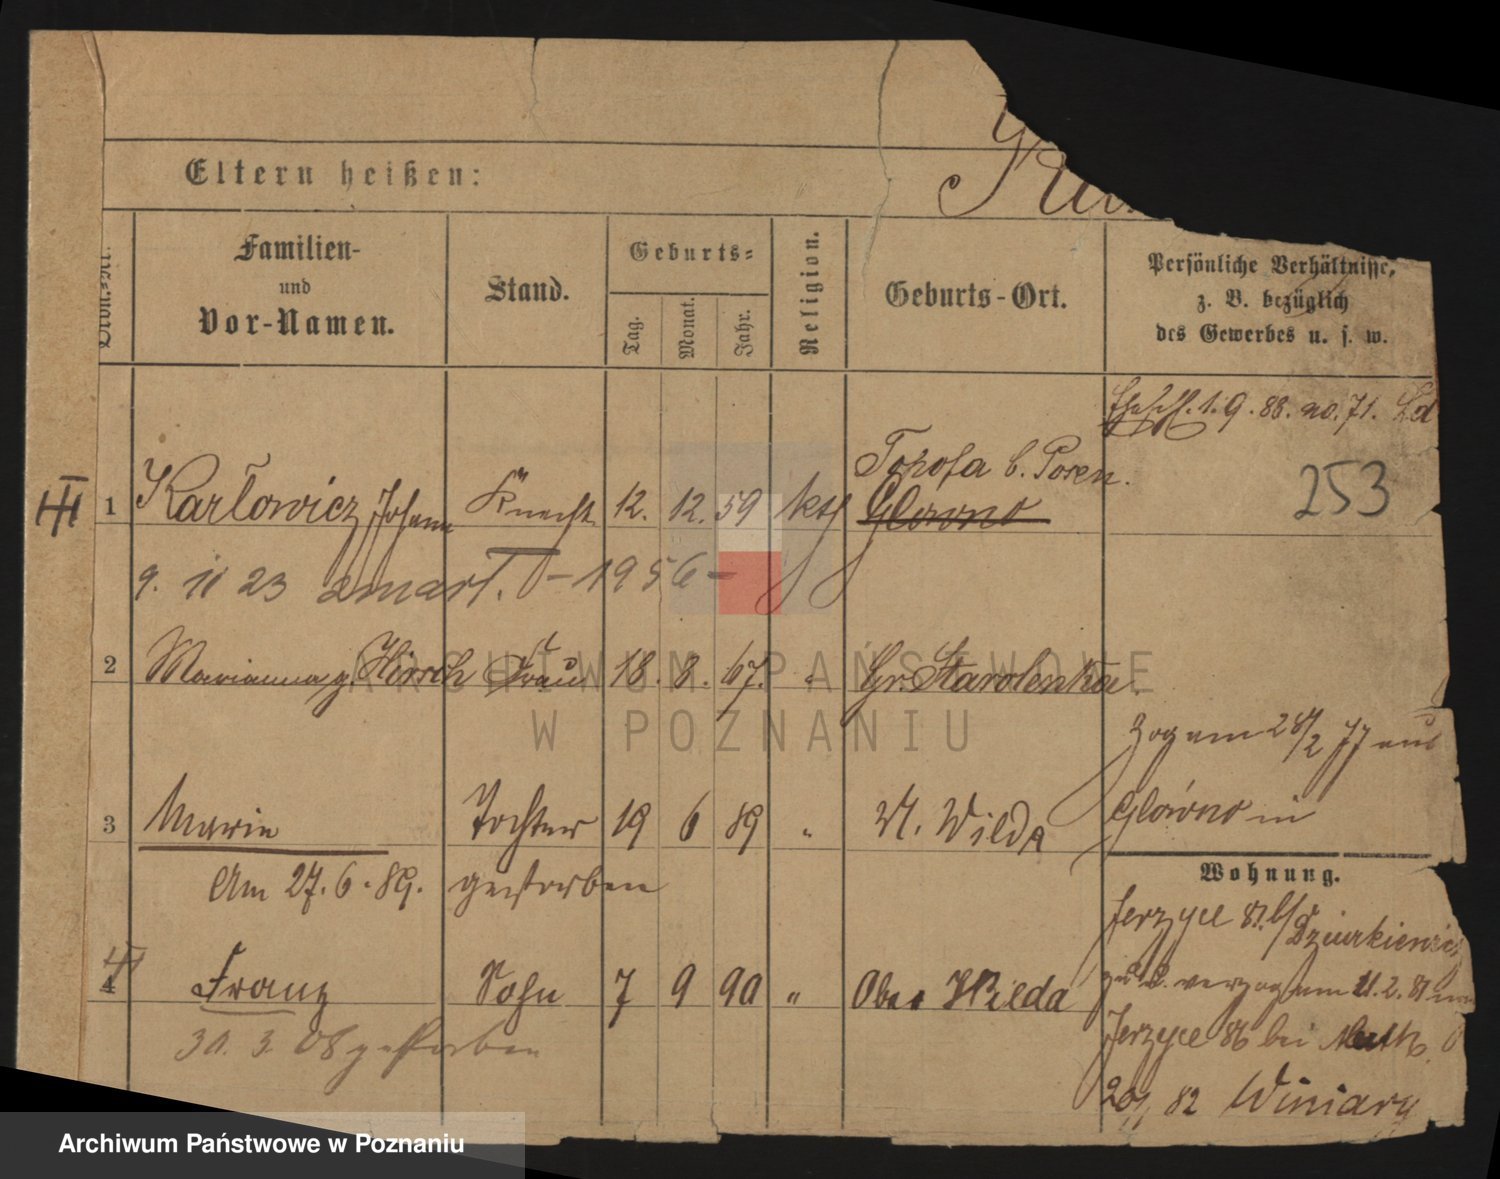 Eltern heißen:
Familien- und Vor-Namen.
Stand.
Geburts-
Tag.
Monat.
Jahr.
Religion.
Geburts-Ort.
Persönliche Verhältnisse,
z. B. bezüglich
des Gewerbes u. s. w.
1. 9. 88. no. 71.
253
Topola b. Posen.
III 1 Karłowicz Johann Knecht 12. 12. 59 kth Glowno
9. 11 23 zmarł. - 1956 -
2 Marianna g. Hirsch Frau 18. 8. 67. " Gr. Starolenka.
Zog am 28/2 77 aus
Glówno in
3 Marie Tochter 19 6 89 " Wilda
Am 27. 6. 89. gestorben
Wohnung.
Jerzyce 87. b/ Dziurkiewicz
verzog am 11. 2. 81
4 Franz Sohn 7 9 90 " Ober Wilda
30. 3. 08 gestorben
Jerzyce 86 bei
82 Winiary
ARCHIWUM PAŃSTWOWE
W POZNANIU
Archiwum Państwowe w Poznaniu